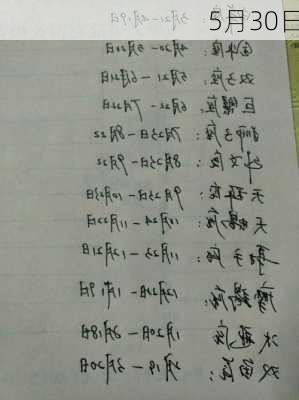 5月30日
3月21-4月19日
金牛座：4月20-5月20日
双子座：5月21-6月21日
巨蟹座：6月22-7月22日
狮子座：7月23日-8月22
处女座：8月23日-9月22
天秤座：9月23日-10月23日
天蝎座：10月24-11月22日
射手座：11月23-12月21日
摩羯座：1月19日
水瓶座 1月20-2月18日
双鱼座：2月19-3月20日